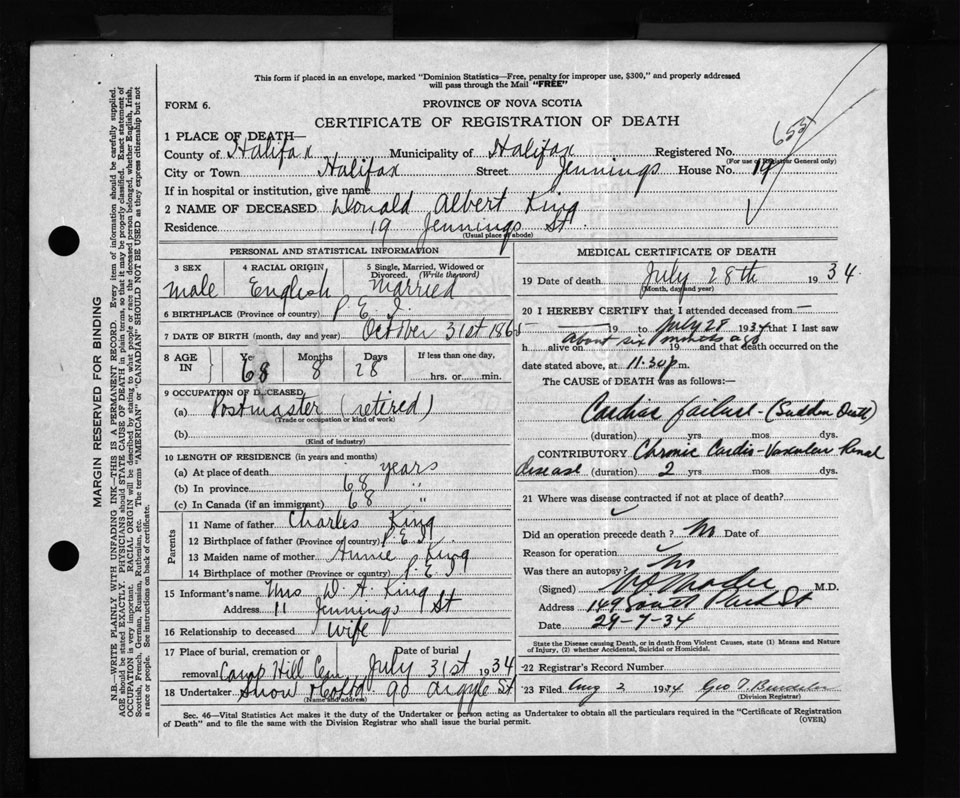 This form if placed in an envelope, marked "Dominion Statistics—Free, penalty for improper use, $300," and properly addressed
will pass through the Mail "FREE"
FORM 6.
PROVINCE OF NOVA SCOTIA
CERTIFICATE OF REGISTRATION OF DEATH
MARGIN RESERVED FOR BINDING
N.B.—WRITE PLAINLY WITH UNFADING INK—THIS IS A PERMANENT RECORD. Every item of information should be carefully supplied.
AGE should be stated EXACTLY. PHYSICIANS should STATE CAUSE OF DEATH in plain terms, so that it may be properly classified. Exact statement of
OCCUPATION is very important. RACIAL ORIGIN will be described by stating to what people or race the deceased person belonged, whether English, Irish,
Scottish, French, German, Russian, Ruthenian, etc. The terms "AMERICAN" or "CANADIAN" SHOULD NOT BE USED as they express citizenship but not
a race or people. See instructions on back of certificate.
1 PLACE OF DEATH—
County of Halifax Municipality of Halifax Registered No. 655
(For use of Registrar General only)
City or Town Halifax Street Jennings House No. 19
If in hospital or institution, give name
2 NAME OF DECEASED Donald Albert King
Residence 19 Jennings St.
(Usual place of abode)
PERSONAL AND STATISTICAL INFORMATION
3 SEX male
4 RACIAL ORIGIN English
5 Single, Married, Widowed or Divorced. (Write the word) Married
6 BIRTHPLACE (Province or country) P. E. I.
7 DATE OF BIRTH (month, day and year) October 31st 1865
8 AGE IN Years 68 Months 8 Days 28 If less than one day, hrs. or min.
9 OCCUPATION OF DECEASED
(a) Postmaster (retired)
(Trade or occupation or kind of work)
(b)
(Kind of industry)
10 LENGTH OF RESIDENCE (in years and months)
(a) At place of death years
(b) In province 68 "
(c) In Canada (if an immigrant) 68 "
Parents
11 Name of father Charles King
12 Birthplace of father (Province or country) P.E.I
13 Maiden name of mother Annie King
14 Birthplace of mother (Province or country) P.E.I
15 Informant's name Mrs D. A. King
Address 11 Jennings St
16 Relationship to deceased wife
17 Place of burial, cremation or removal Camp Hill Cem. Date of burial July 31st 1934
18 Undertaker Snow & Co Ltd. 90 Argyle St
(Name and address)
MEDICAL CERTIFICATE OF DEATH
19 Date of death July 28th 1934
(Month, day and year)
20 I HEREBY CERTIFY that I attended deceased from —
— 19 to July 28 1934 that I last saw
h alive on about six months ago 19 and that death occurred on the
date stated above, at 11:30 p.m.
The CAUSE OF DEATH was as follows:—
Cardiac failure - (Sudden Death)
(duration) yrs. mos. dys.
CONTRIBUTORY Chronic Cardio-Vascular Renal
disease (duration) 2 yrs. mos. dys.
21 Where was disease contracted if not at place of death?
Did an operation precede death? No Date of
Reason for operation
Was there an autopsy? No
(Signed) M.D.
Address 149 South Park St
Date 29-7-34
State the Disease causing Death, or in death from Violent Causes, state (1) Means and Nature
of Injury, (2) whether Accidental, Suicidal or Homicidal.
22 Registrar's Record Number
23 Filed Aug 2 1934 Geo T.
(Division Registrar)
Sec. 46—Vital Statistics Act makes it the duty of the Undertaker or person acting as Undertaker to obtain all the particulars required in the "Certificate of Registration
of Death" and to file the same with the Division Registrar who shall issue the burial permit.
(OVER)